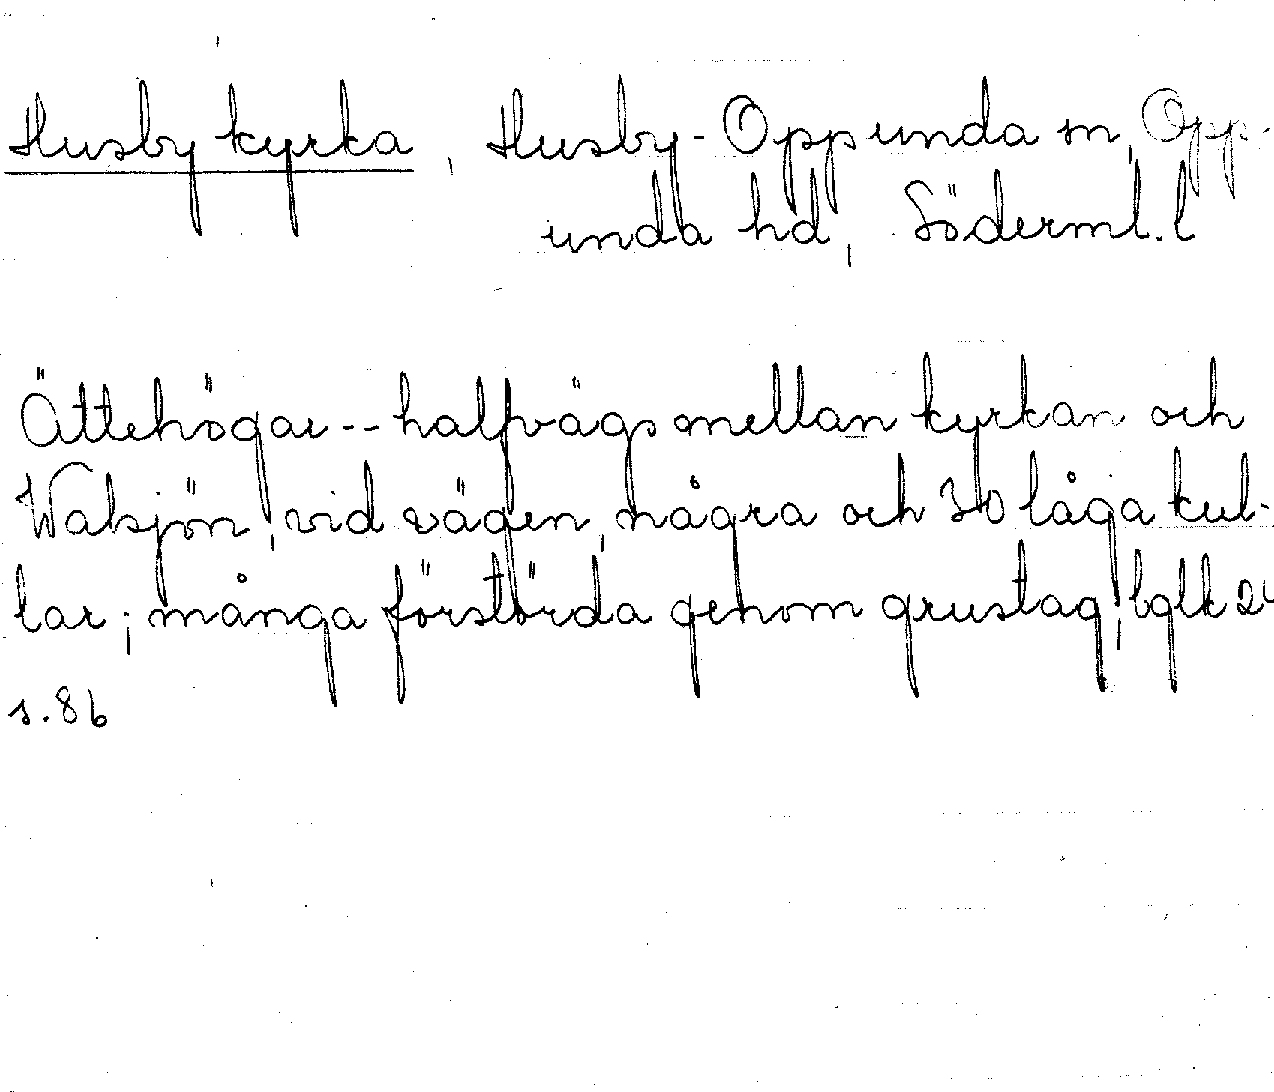 Husby kyrka, Husby-Oppunda sn, Opp-
unda hd, Söderml. l
Ättehögar -- halfvägs mellan kyrkan och
Valsjön, vid vägen, några och 30 låga kul-
lar; många förstörda genom grustag, bglk
s. 86